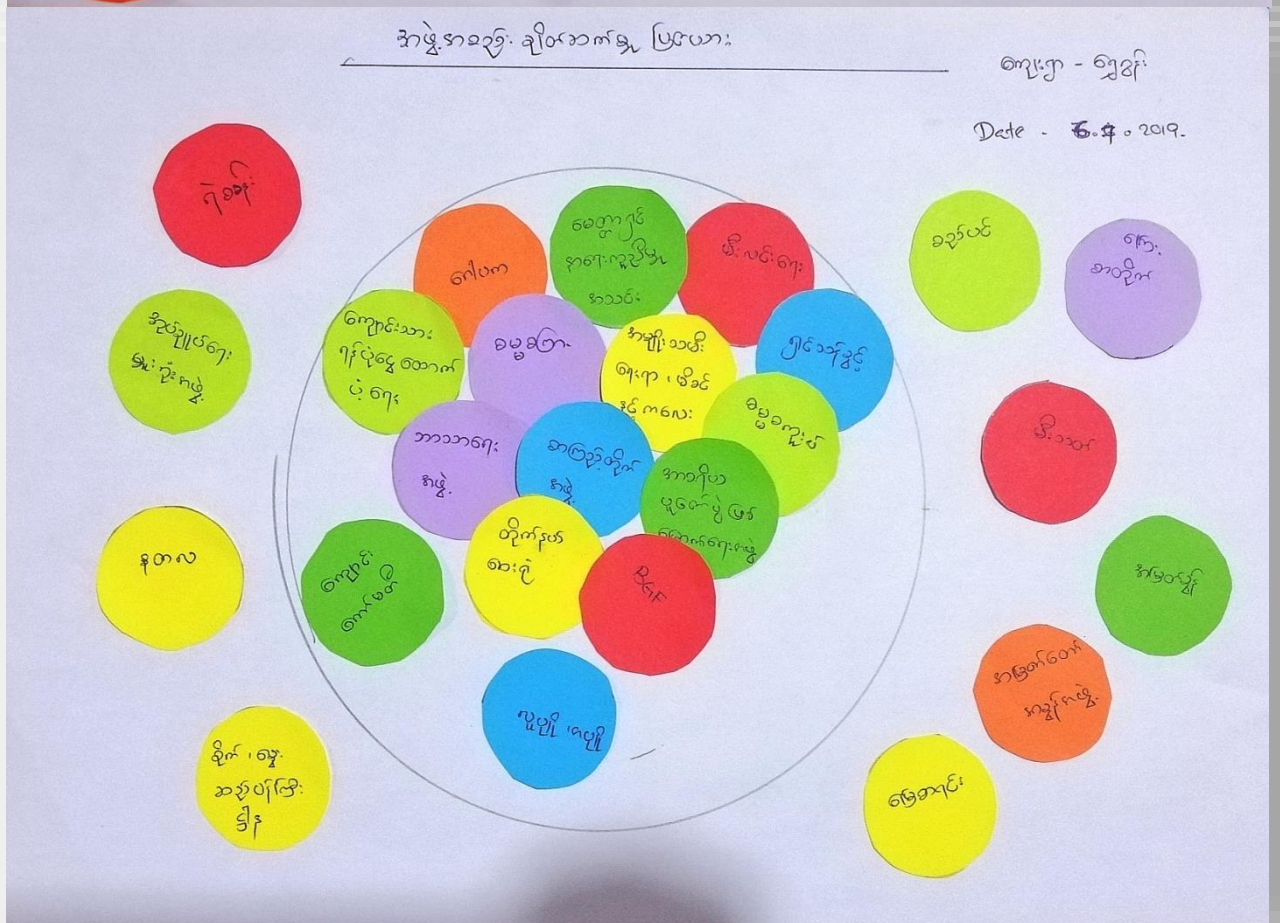 အဖွဲ့အစည်း ချိတ်ဆက်မှု ပြမယား
ကျေးရွာ - ရွှေခွန်း
Date - 6.7.2019.
ရဲစခန်း
အုပ်ချုပ်ရေး
မှူးရုံးအဖွဲ့
နတလ
စိုက်၊ မွေး
ဆည်ဝန်ကြီး
ဌာန
ဂေါပက
မေတ္တာရှင်
နာရေးကူညီမှု
အသင်း
မီးလင်းရေး
ကျောင်းသား
ရန်ပုံငွေထောက်
ပံ့ရေး
ဓမ္မစကြာ
အမျိုးသမီး
ရေးရာ၊ မိခင်
နှင့်ကလေး
ရှင်သန်ခွင့်
ဘာသာရေး
အဖွဲ့
စာကြည့်တိုက်
အဖွဲ့
ဓမ္မစကူးလ်
အာစရိယ
ပူဇော်ပွဲဖြစ်
မြောက်ရေးအဖွဲ့
ကျောင်း
ကော်မတီ
တိုက်နယ်
ဆေးရုံ
လူပျို၊ အပျို
စည်ပင်
ကြေး
စာတိုက်
မီးသတ်
အမြတ်ခွန်
အမြတ်တော်
အခွန်အဖွဲ့
မြေစာရင်း